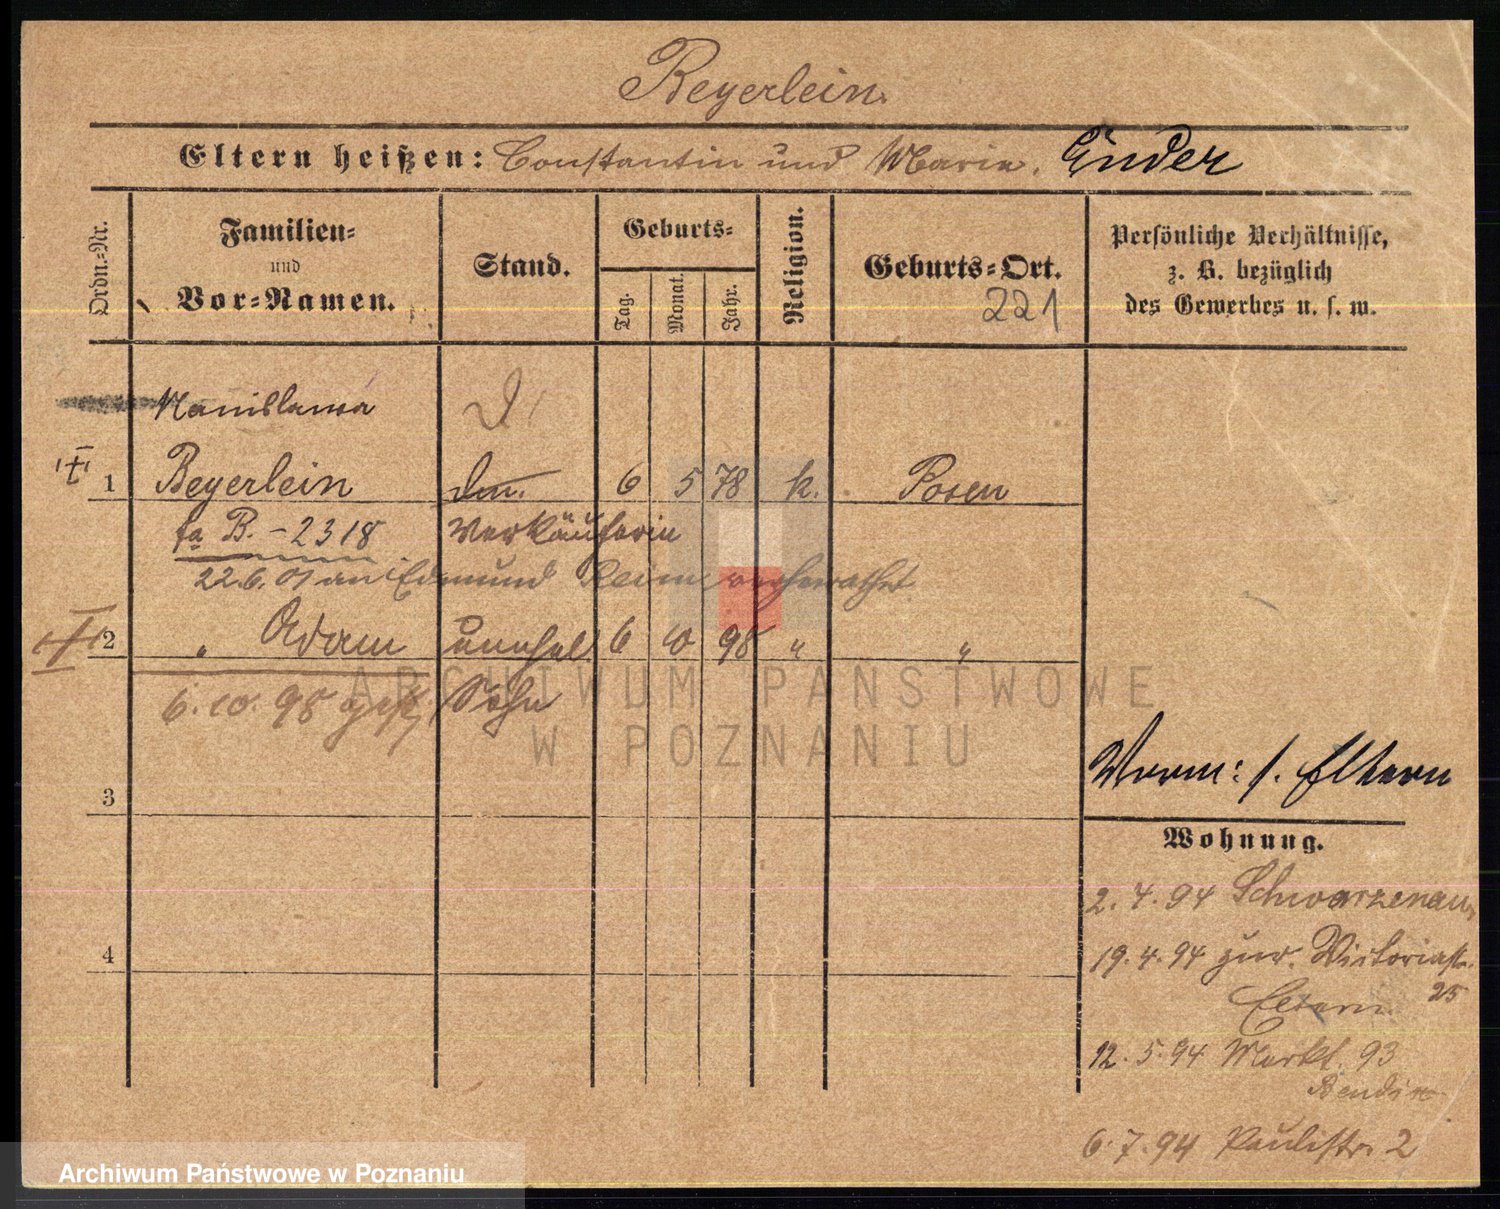 Beyerlein.
Eltern heißen: Constantin und Maria. Ender
Ordn.-Nr.
Familien-
und
Vor-Namen.
Stand.
Geburts-
Tag.
Monat.
Jahr.
Religion.
Geburts-Ort.
221
Persönliche Verhältnisse,
z. B. bezüglich
des Gewerbes u. s. w.
1
Beyerlein
6 5 78 k. Posen
B. - 2318 Verkäuferin
22.6.01 an Edmund verheirathet
2 " Adam unehel 6 10 98 " "
6.10.98 Sohn
3
Eltern
Wohnung.
2.4.94 Schwarzenau
4
19.4.94 zur. Victoriastr.
25
Eltern.
12.5.94 Markt. 93
6.7.94 Paulistr. 2
ARCHIWUM PAŃSTWOWE
W POZNANIU
Archiwum Państwowe w Poznaniu